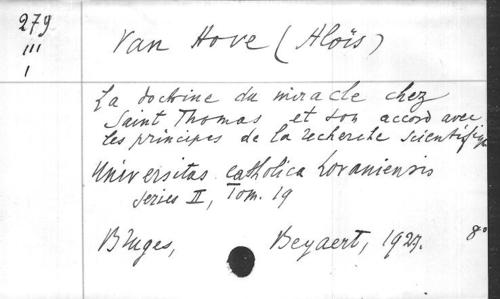 279
III
1
Van Hove (Aloïs)
La doctrine du miracle chez
Saint Thomas et son accord avec
les principes de la recherche scientifique
Universitas catholica Lovaniensis
series II, Tom. 19
Bruges, Beyaert, 1927. 8°